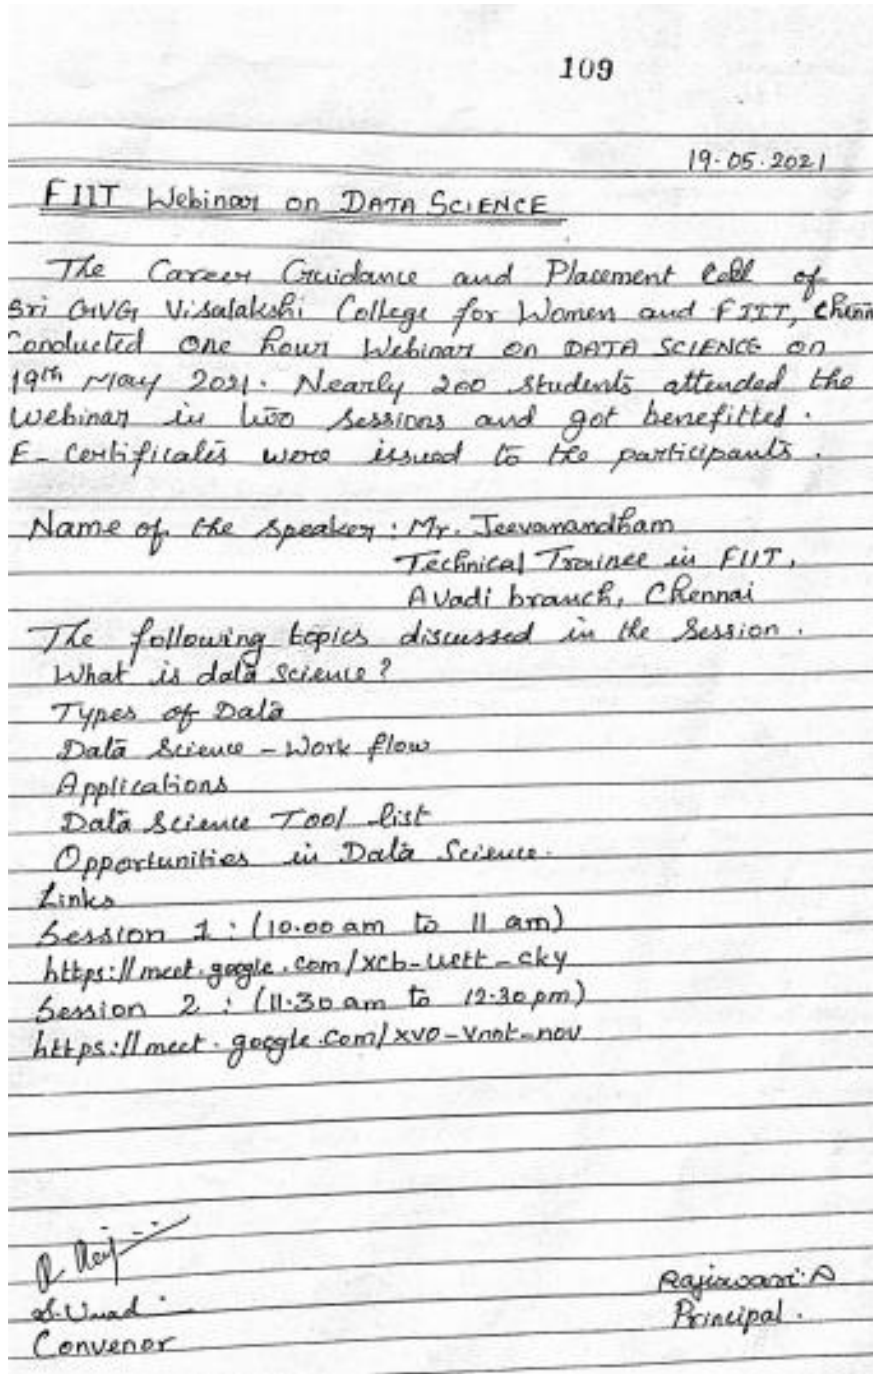 109
19.05.2021
FIIT Webinar on DATA SCIENCE
The Career Guidance and Placement Cell of
Sri GVG Visalakshi College for Women and FIIT, Chenn
Conducted One hour Webinar on DATA SCIENCE on
19th May 2021. Nearly 200 students attended the
Webinar in two sessions and got benefitted.
E-Certificates were issued to the participants.
Name of the Speaker : Mr. Jeevanandham
Technical Trainee in FIIT,
Avadi branch, Chennai
The following topics discussed in the Session.
What is data science?
Types of Data
Data Science - Work flow
Applications
Data Science Tool list
Opportunities in Data Science.
Links
Session 1 : (10.00 am to 11 am)
https://meet.google.com/xcb-uett-cky
Session 2 : (11.30 am to 12.30 pm)
https://meet.google.com/xvo-vnnt-nov
Convenor
Principal.